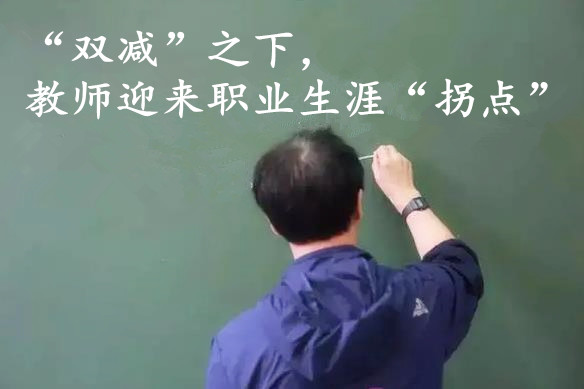 “双减”之下，
教师迎来职业生涯“拐点”